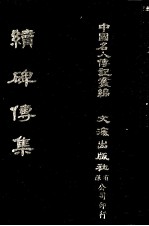 中國名人傳記叢編
文海出版社有限公司印行
續碑傳集